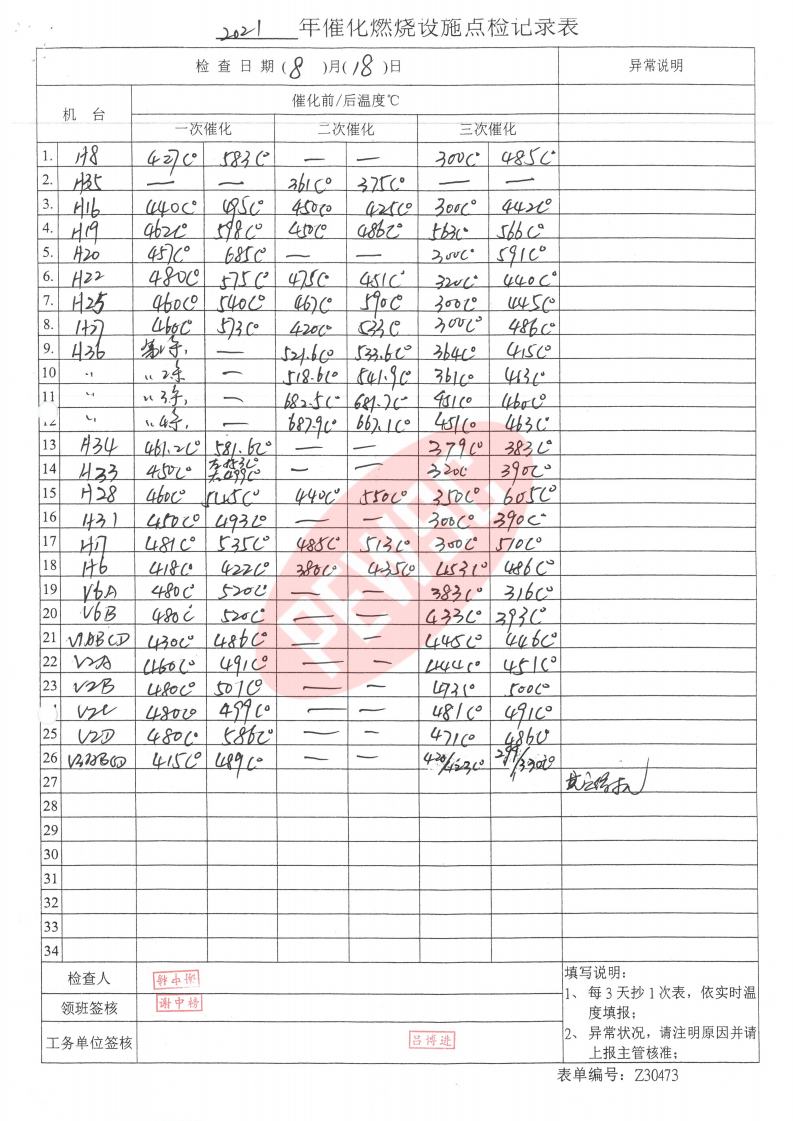 2021 年催化燃烧设施点检记录表
检查日期(8)月(18)日 异常说明
机 台 催化前/后温度℃
一次催化 二次催化 三次催化
1. H8 427C° 583C° — — 300C° 485C°
2. H35 — — 361C° 375C° — —
3. H16 440C° 495C° 450C° 425C° 300C° 442C°
4. H19 462C° 598C° 450C° 486C° 563C° 566C°
5. H20 457C° 685C° — — 300C° 591C°
6. H22 480C° 575C° 475C° 451C° 320C° 440C°
7. H25 460C° 540C° 467C° 590C° 300C° 445C°
8. H27 460C° 573C° 420C° 533C° 300C° 486C°
9. H36 — 521.6C° 533.6C° 364C° 415C°
10 〃 〃2条 — 518.6C° 541.9C° 361C° 453C°
11 〃 〃3条, — 682.5C° 681.7C° 451C° 460C°
〃 〃4条, — 687.9C° 667.1C° 451C° 463C°
13 H34 461.2C° 581.6C° — — 379C° 383C°
14 H33 450C° — — 320C 390C°
15 H28 460C° 440C° 550C° 350C° 605C°
16 H31 450C° 493C° — — 300C° 390C°
17 H17 481C° 535C° 485C° 513C° 300C° 510C°
18 H6 418C° 422C° 380C° 435C° 453C° 486C°
19 V6A 480C° 520C° — — 383C° 316C°
20 V6B 480C° 520C° — — 433C° 393C°
21 V1ABCD 430C° 486C° — — 445C° 446C°
22 V2A 460C° 491C° — — 444C° 451C°
23 V2B 480C° 507C° — — 473C° 500C°
V2C 480C° 499C° — — 481C° 491C°
25 V2D 480C° 586C° — — 471C° 486C°
26 V3ABCD 415C° 489C° — — 420/423C° 299/330C°
27
28
29
30
31
32
33
34
检查人
领班签核 谢中榜
工务单位签核 吕博进
填写说明:
1、每3天抄1次表,依实时温
度填报;
2、异常状况,请注明原因并请
上报主管核准;
表单编号:Z30473
PEWC